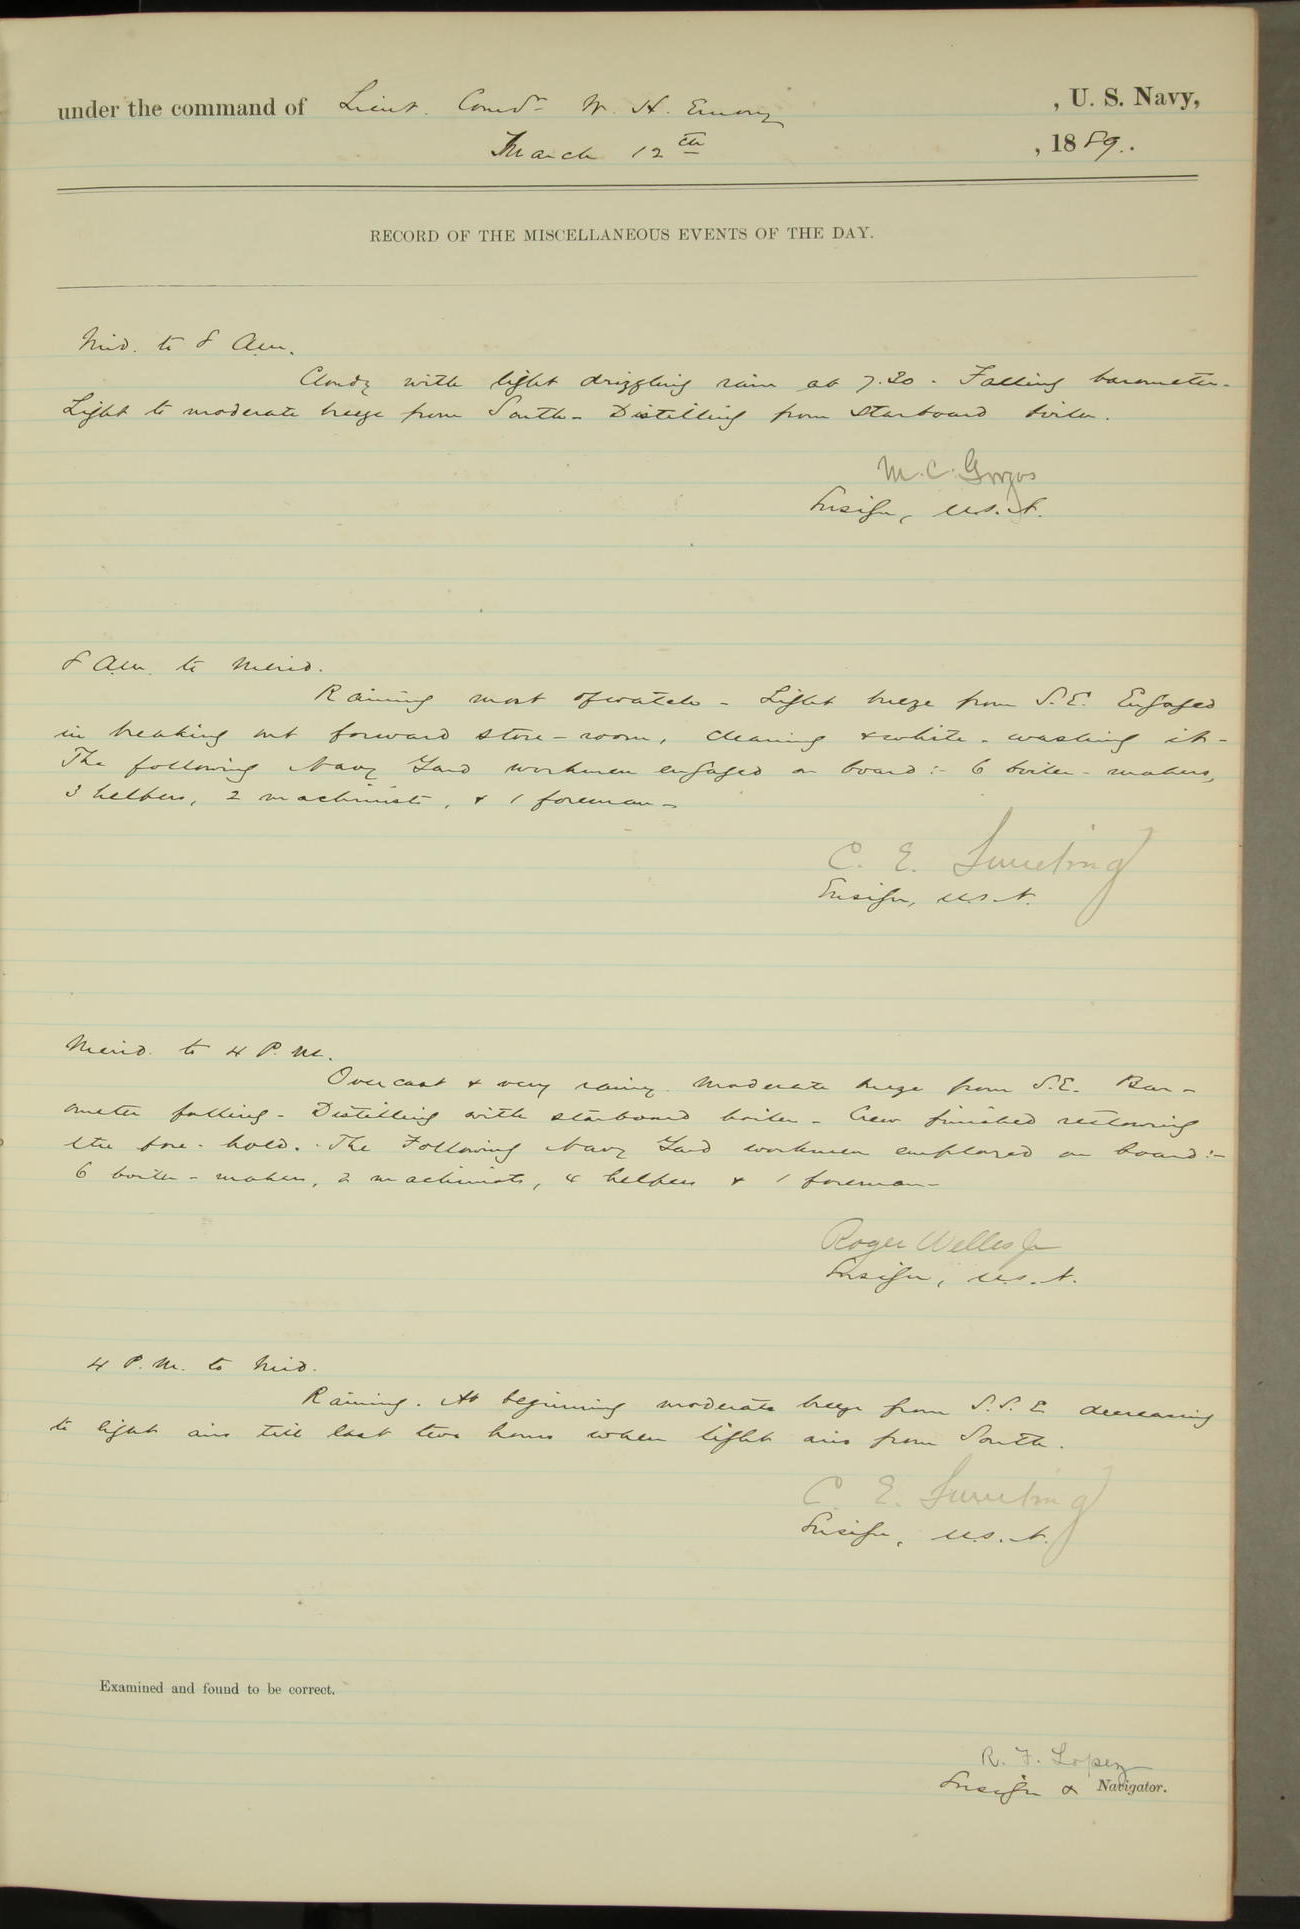 under the command of Lieut. Comdr W. H. Emory, U. S. Navy,
March 12th, 1889.
RECORD OF THE MISCELLANEOUS EVENTS OF THE DAY.
Mid. to 8 A.m.
Cloudy with light drizzling rain at 7.20. Falling barometer.
Light to moderate breeze from South - Distilling from starboard boiler.
M. C. Gorgas
Ensign, U.S.N.
8 A.m. to Merid.
Raining most of watch - Light breeze from S.E. Engaged
in breaking out forward store-room, cleaning & white-washing it -
The following Navy Yard workmen engaged on board:- 6 boiler-makers,
3 helpers, 2 machinists, & 1 foreman -
C. E. Sweeting
Ensign, U.S.N.
Merid. to 4 P.M.
Overcast & very rainy. Moderate breeze from S.E. Bar-
ometer falling - Distilling with starboard boiler - Crew finished restowing
the fore-hold. The Following Navy Yard workmen employed on board:-
6 boiler-makers, 2 machinists, 4 helpers & 1 foreman -
Roger Welles Jr
Ensign, U.S.N.
4 P.M. to Mid.
Raining. At beginning moderate breeze from S.S.E. decreasing
to light airs till last two hours when light airs from South.
C. E. Sweeting
Ensign, U.S.N.
Examined and found to be correct.
R. F. Lopez
Ensign & Navigator.